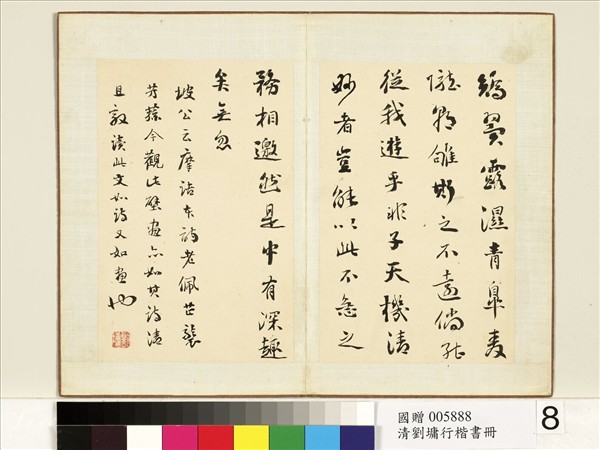 矯翼露濕青皋麥
隴朝雊斯之不遠倘能
從我遊乎非子天機清
妙者豈能以此不急之
務相邀然是中有深趣
矣無忽
坡公云摩詰本詩老佩芷襲
芳蓀今觀此壁畫亦如其詩清
且敦讀此文如詩又如畫也
國贈 005888
清劉墉行楷書冊
8